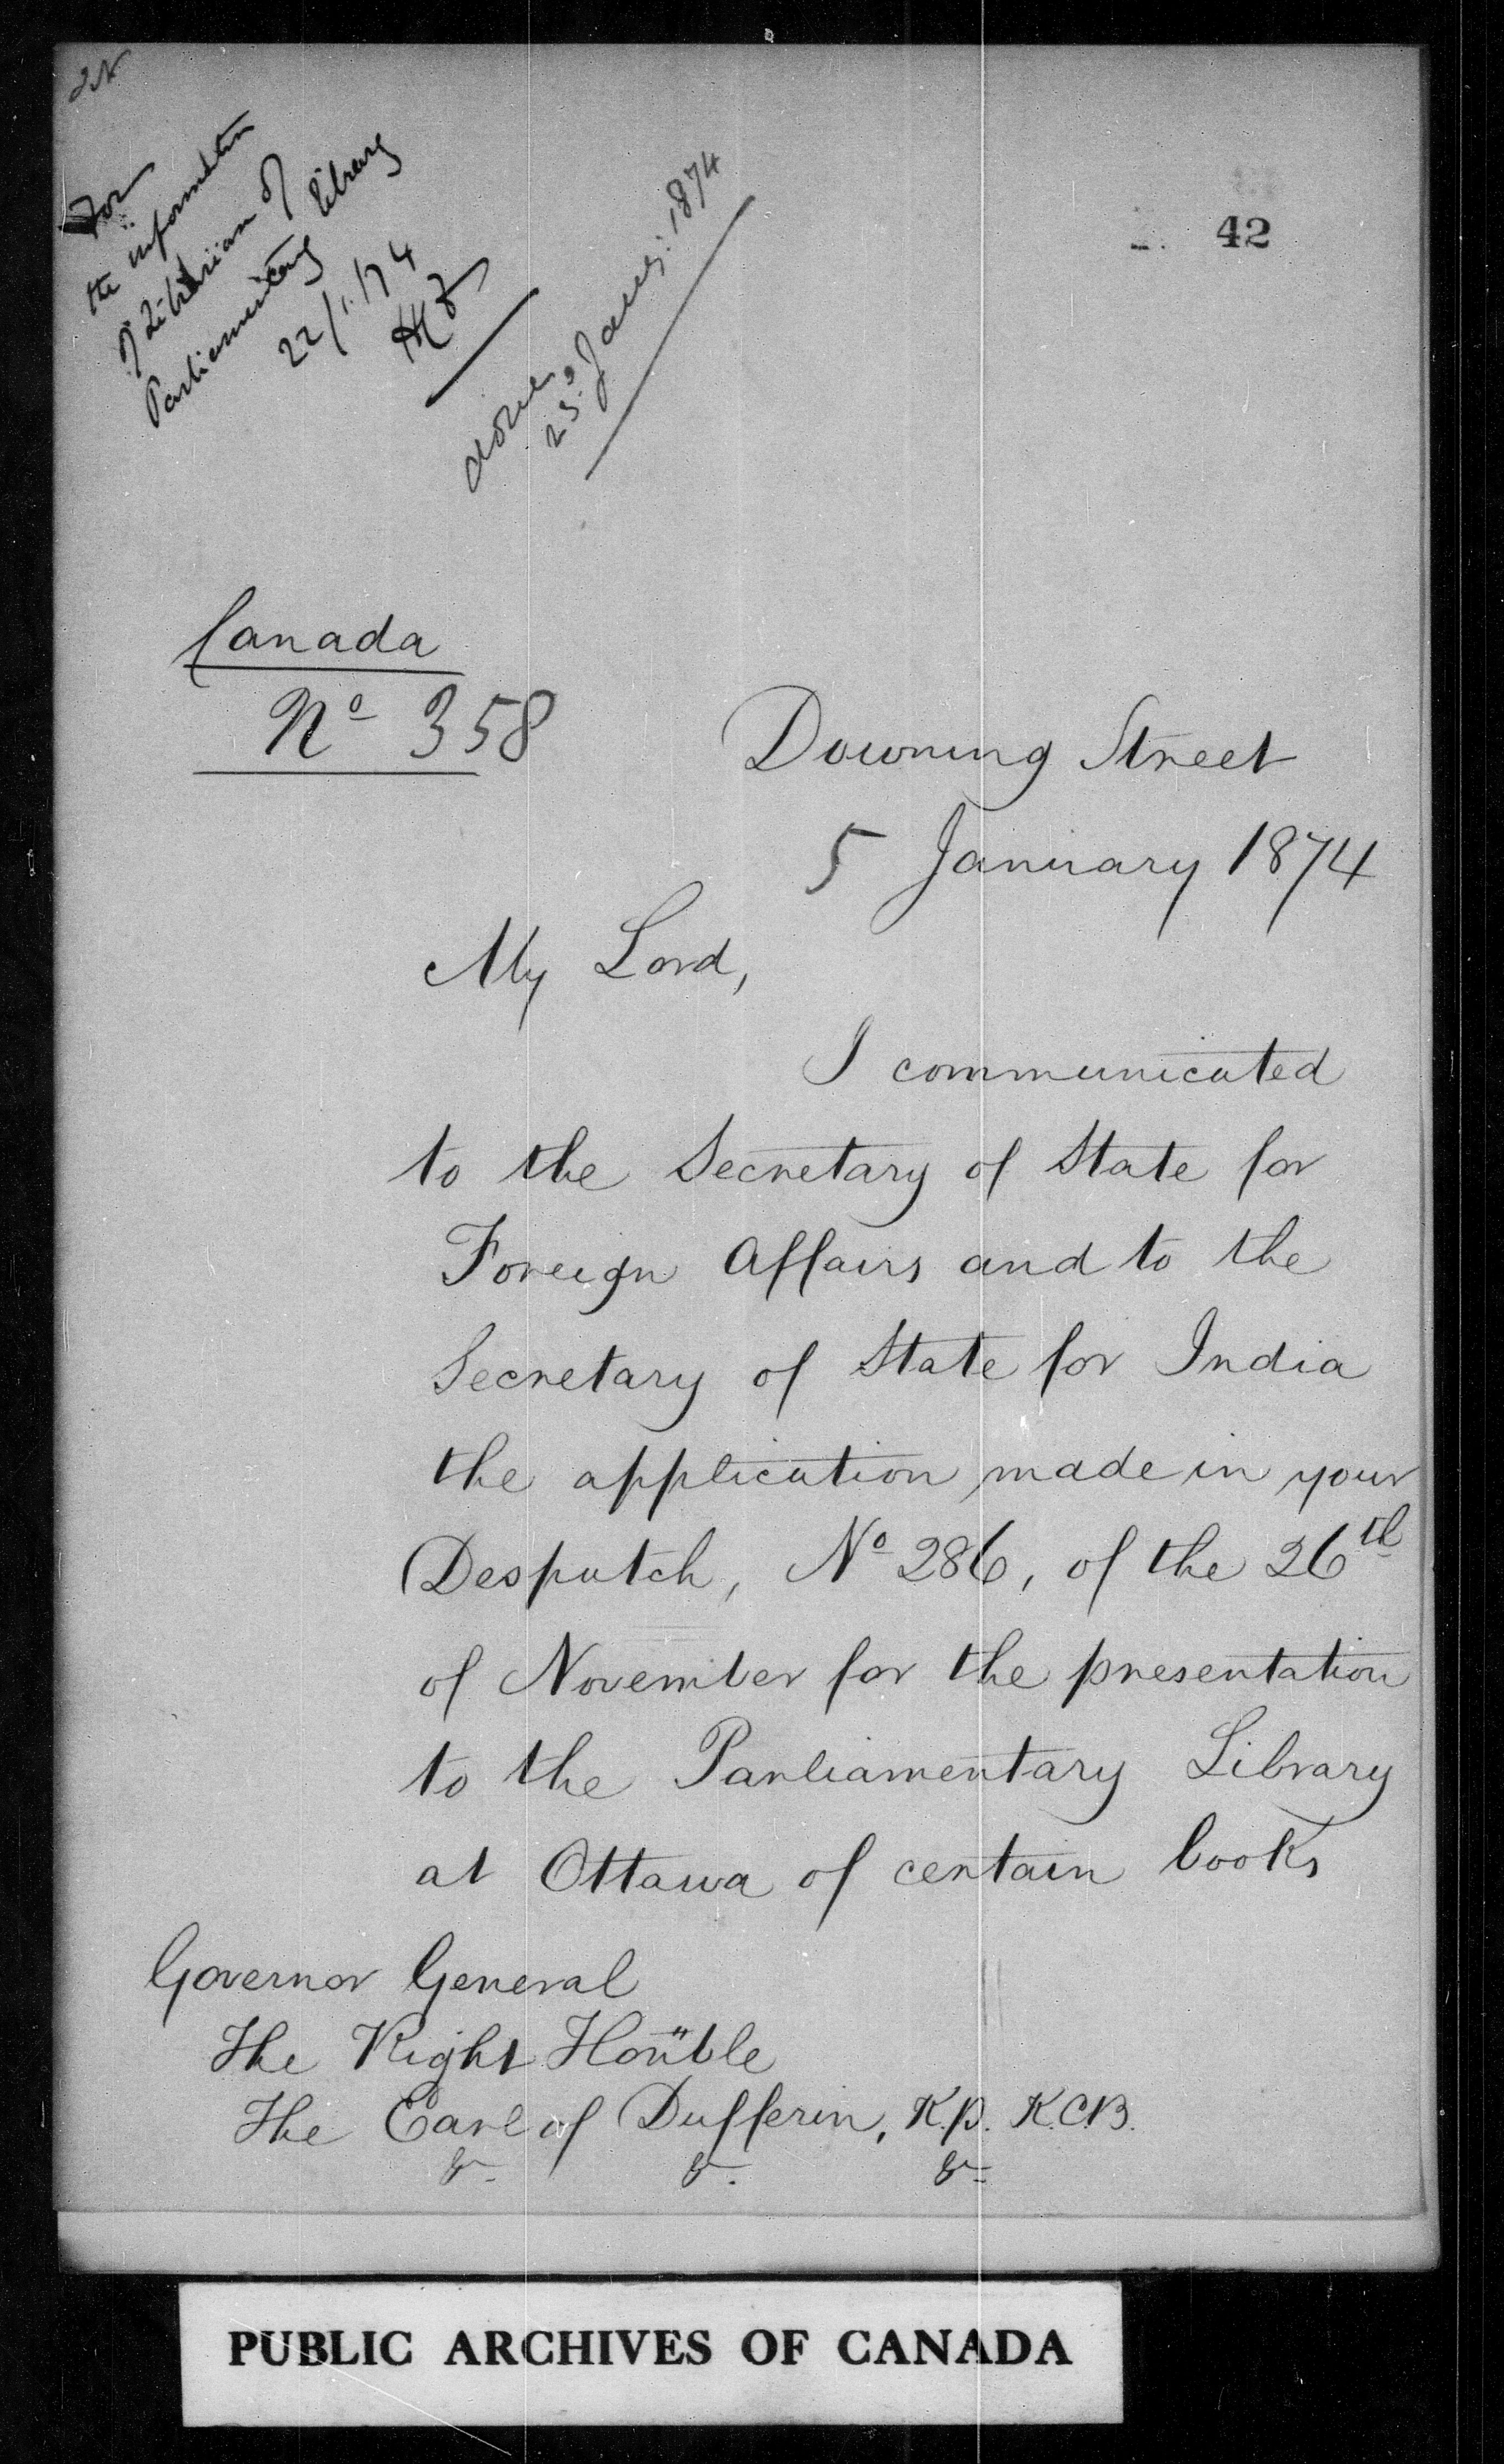 For
the information
of Librarian of
Parliamentary Library
22/1/74
done,
23. Jany: 1874
42
Canada
No 358
Downing Street
5 January 1874
My Lord,
I communicated
to the Secretary of State for
Foreign Affairs and to the
Secretary of State for India
the application made in your
Despatch, No 286, of the 26th
of November for the presentation
to the Parliamentary Library
at Ottawa of certain books
Governor General
The Right Honble
The Earl of Dufferin, K.P. K.C.B.
&c. &c. &c.
PUBLIC ARCHIVES OF CANADA